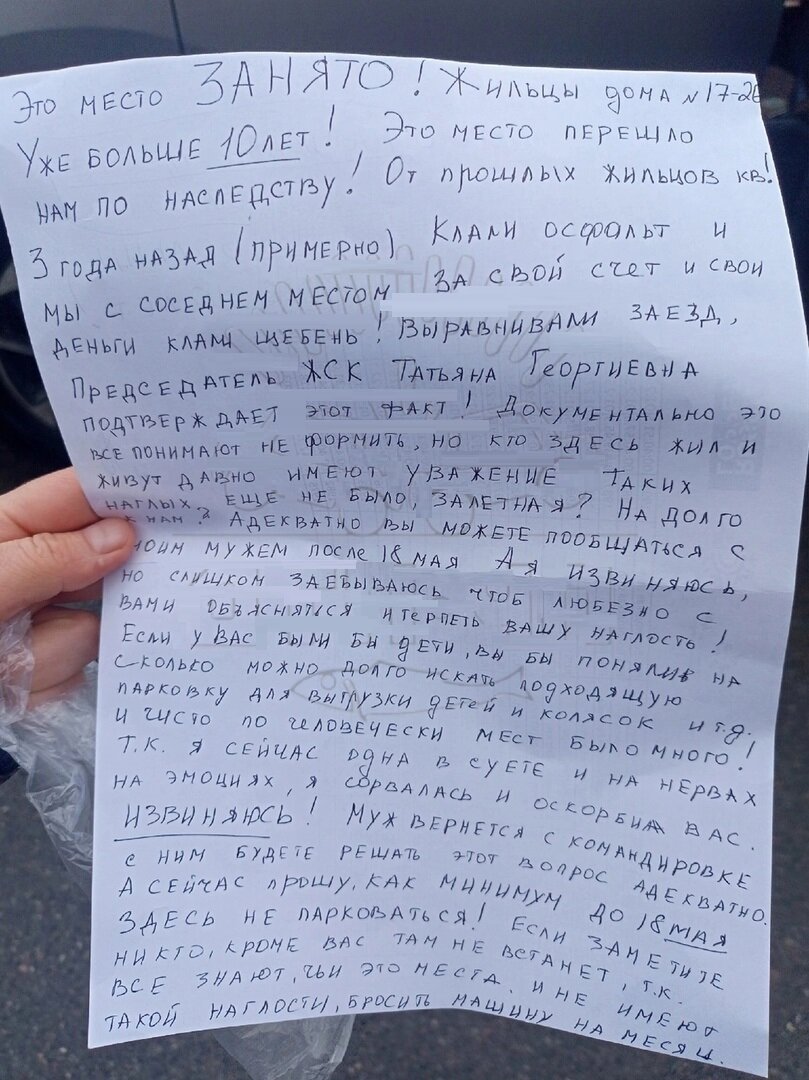 Это место ЗАНЯТО! Жильцы дома N 17-2
Уже больше 10 лет! Это место перешло
нам по наследству! От прошлых жильцов кв!
3 года назад (примерно) клали осфальт и
мы с соседнем местом за свой счет и свои
деньги клали щебень! Выравнивали заезд,
Председатель ЖСК Татьяна Георгиевна
подтверждает этот факт! Документально это
все понимают не формить, но кто здесь жил и
живут давно имеют уважение таких
наглых еще не было, залетная? На долго
к нам? Адекватно вы можете пообщаться с
моим мужем после 18 мая А я извиняюсь,
но слишком заебываюсь чтоб любезно с
вами объясняться и терпеть вашу наглость!
Если у вас были бы дети, вы бы поняли на
сколько можно долго искать подходящую
парковку для выгрузки детей и колясок и т.д.
и чисто по человечески мест было много!
Т.к. я сейчас одна в суете и на нервах
на эмоциях, я сорвалась и оскорбила вас.
ИЗВИНЯЮСЬ! Муж вернется с командировке
с ним будете решать этот вопрос адекватно.
А сейчас прошу, как минимум до 18 мая
здесь не парковаться! Если заметите
никто, кроме вас там не встанет, т.к.
все знают, чьи это места. и не имеют
такой наглости, бросить машину на месяц.